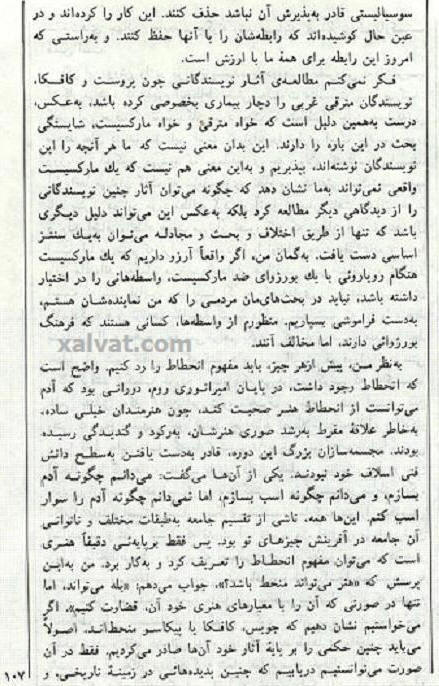 سوسیالیستی قادر به‌پذیرش آن نباشد حذف کنند. این کار را کرده‌اند و در
عین حال کوشیده‌اند که رابطه‌شان را با آنها حفظ کنند. و به‌راستی که
امروز این رابطه برای همهٔ ما با ارزش است.
فکر نمی‌کنم مطالعه‌ی آثار نویسندگانی چون پروست و کافکا،
نویسندگان مترقی غربی را دچار بیماری بخصوصی کرده باشد، به‌عکس،
درست به‌همین دلیل است که خواه مترقی و خواه مارکسیست، شایستگی
بحث در این باره را دارند. این بدان معنی نیست که ما هر آنچه را این
نویسندگان نوشته‌اند، بپذیریم و به‌این معنی هم نیست که یك مارکسیست
واقعی نمی‌تواند به‌ما نشان دهد که چگونه می‌توان آثار چنین نویسندگانی
را از دیدگاهی دیگر مطالعه کرد بلکه به‌عکس این می‌تواند دلیل دیگری
باشد که تنها از طریق اختلاف و بحث و مجادله می‌توان به‌یك سنتز
اساسی دست یافت. به‌گمان من، اگر واقعاً آرزو داریم که یك مارکسیست
هنگام رویاروئی با یك بورژوای ضد مارکسیست، واسطه‌هائی را در اختیار
داشته باشد، نباید در بحث‌های‌مان مردمی را که من نماینده‌شان هستم،
به‌دست فراموشی بسپاریم. منظورم از واسطه‌ها، کسانی هستند که فرهنگ
بورژوائی دارند، اما مخالف آنند.
xalvat.com
به‌نظر من، پیش ازهر چیز، باید مفهوم انحطاط را رد کنیم. واضح است
که انحطاط وجود داشت، در پایان امپراتوری روم، دورانی بود که آدم
می‌توانست از انحطاط هنر صحبت کند، چون هنرمندان خیلی ساده،
به‌خاطر علاقهٔ مفرط به‌رشد صوری هنرشان، به‌رکود و گندیدگی رسیده
بودند. مجسمه‌سازان بزرگ این دوره، قادر به‌دست یافتن به‌سطح دانش
فنی اسلاف خود نبودند. یکی از آن‌ها می‌گفت: می‌دانم چگونه آدم
بسازم، و می‌دانم چگونه اسب بسازم، اما نمی‌دانم چگونه آدم را سوار
اسب کنم. این‌ها همه، ناشی از تقسیم جامعه به‌طبقات مختلف و ناتوانی
آن جامعه در آفرینش چیزهای نو بود. پس فقط برپایه‌ئی دقیقاً هنری
است که می‌توان مفهوم انحطاط را تعریف کرد و به‌کار برد. من به‌این
پرسش که «هنر می‌تواند منحط باشد؟»، جواب می‌دهم: «بله می‌تواند، اما
تنها در صورتی که آن را با معیارهای هنری خود آن، قضاوت کنیم». اگر
می‌خواستیم نشان دهیم که جویس، کافکا یا پیکاسو منحط‌اند، اصولاً
می‌باید چنین حکمی را بر پایهٔ آثار خود آن‌ها صادر می‌کردیم. فقط در آن
صورت می‌توانستیم دریابیم که چنین پدیده‌هائی در زمینهٔ تاریخی، و
۱۰۷